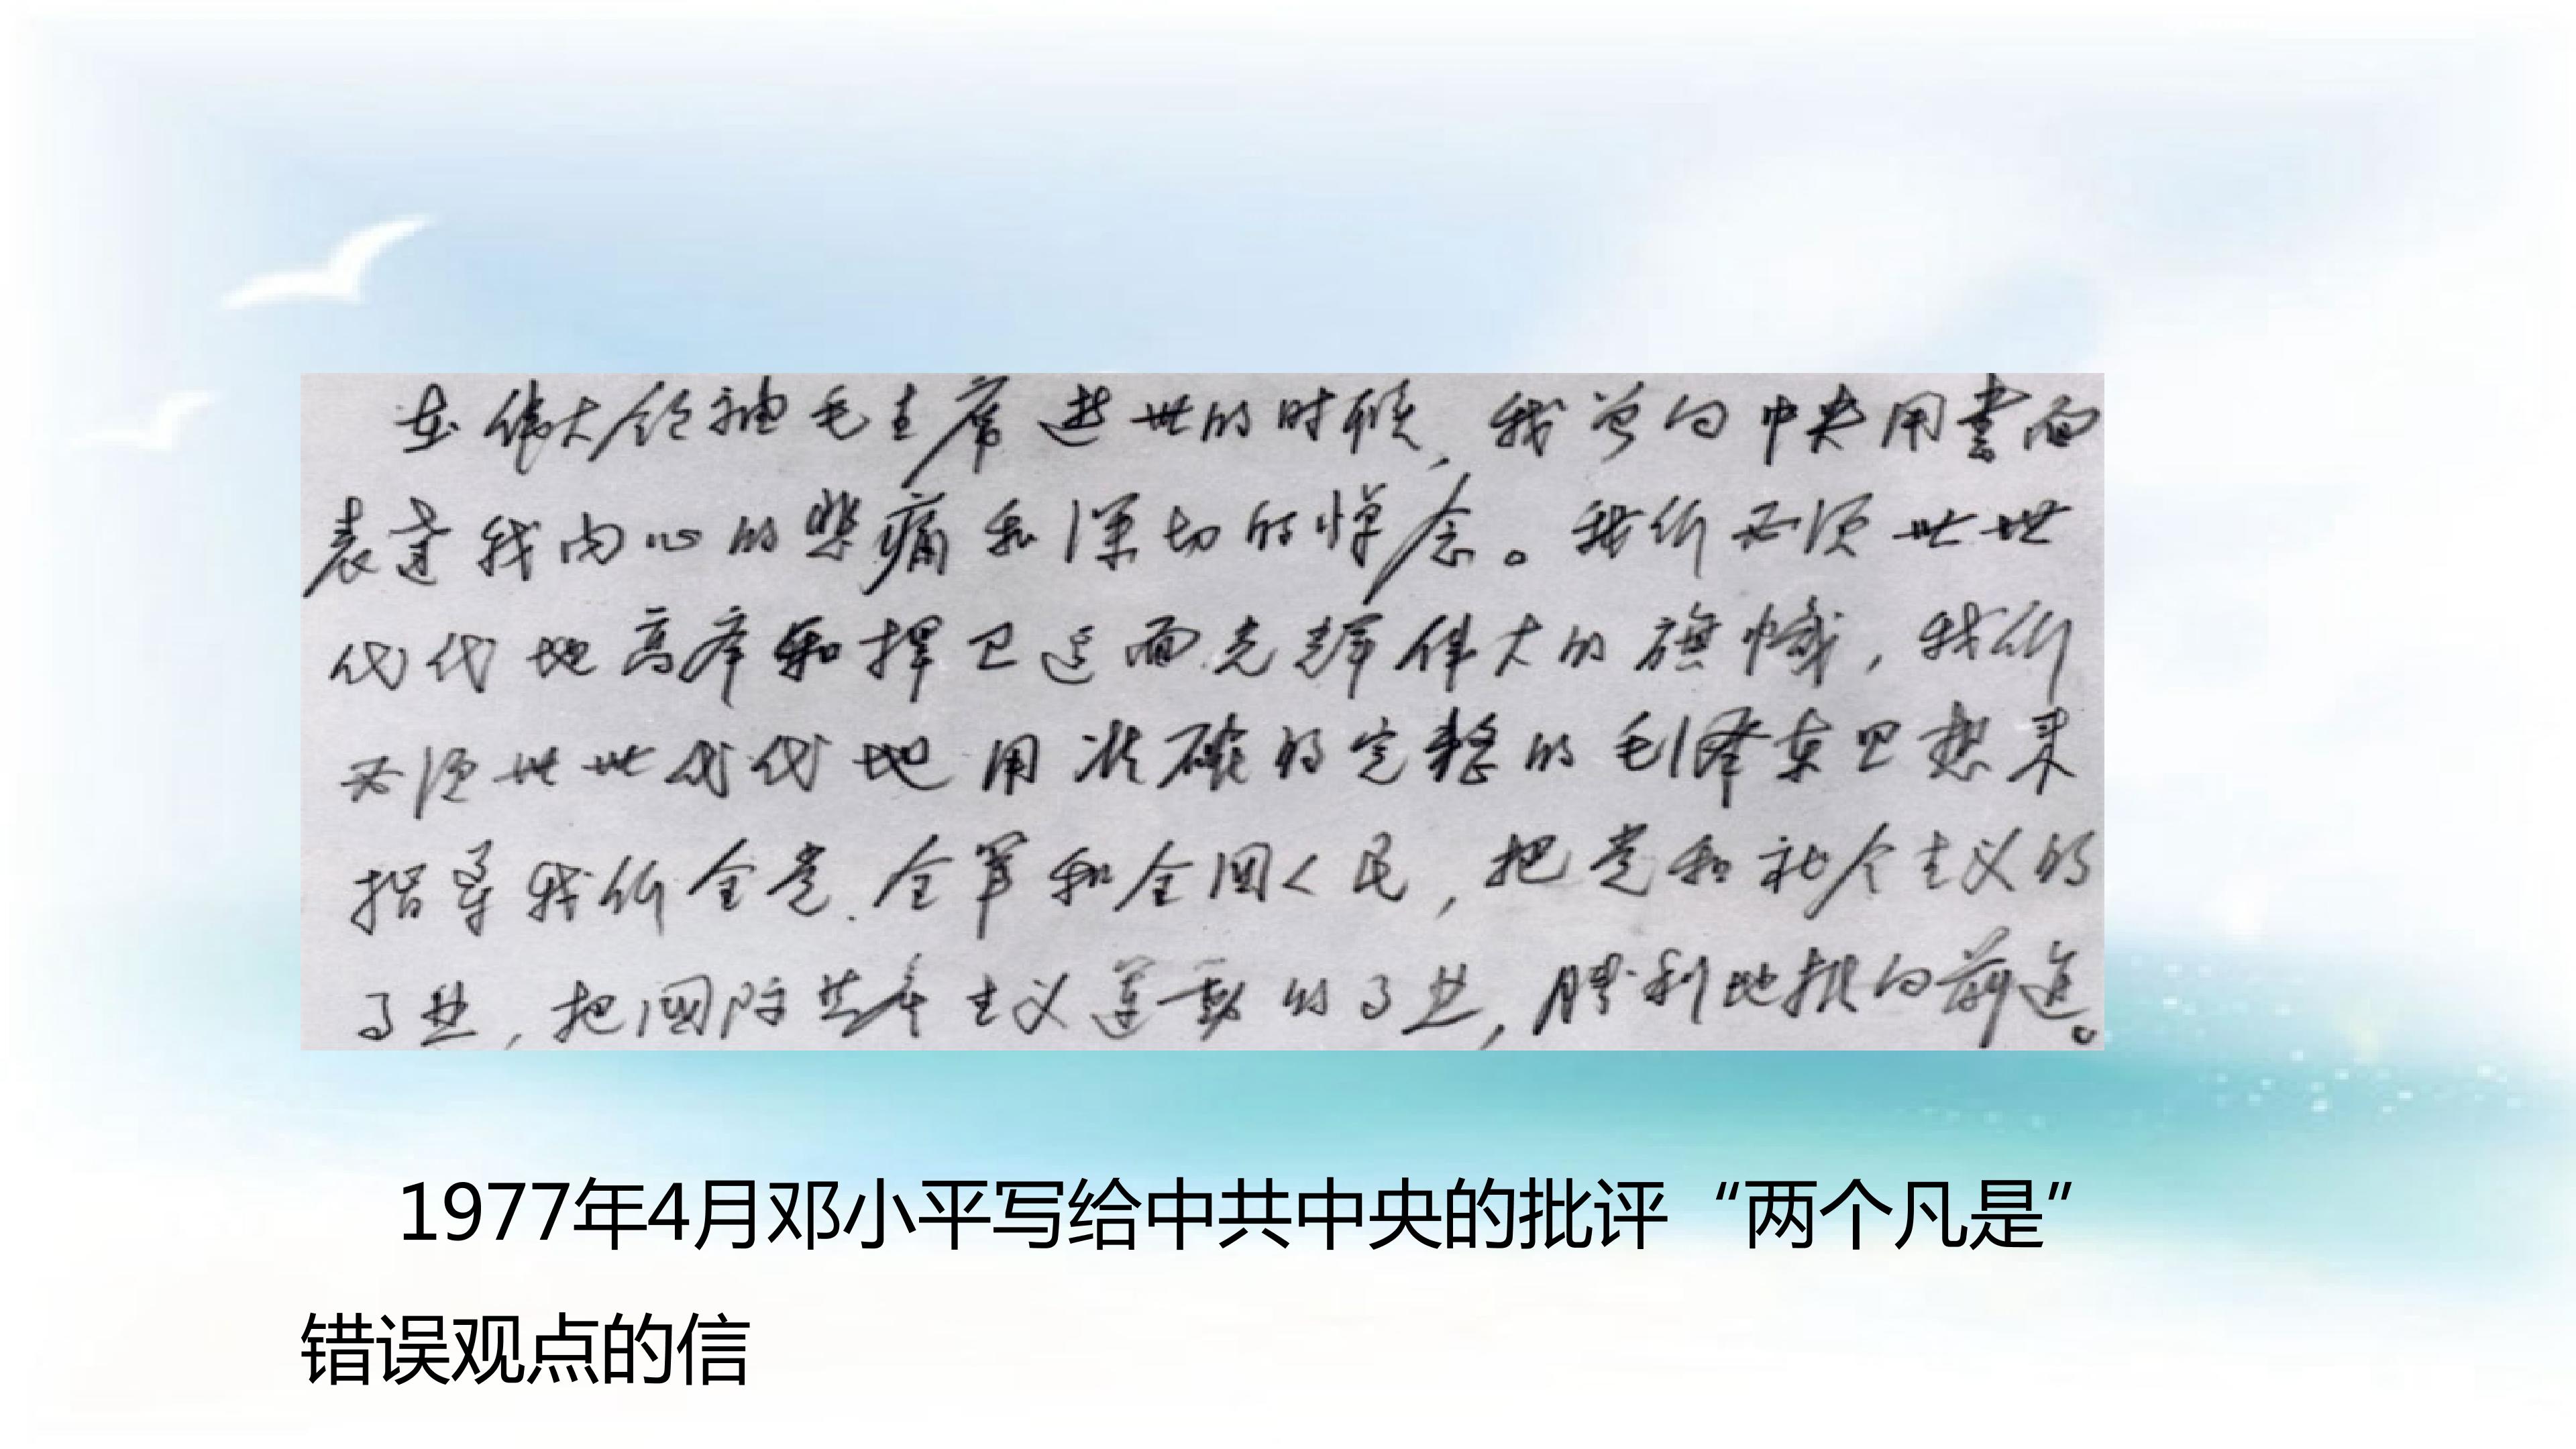 在伟大领袖毛主席逝世的时候，我曾向中央用書面
表达我内心的悲痛和深切的悼念。我们必须世世
代代地高举和捍卫这面光辉伟大的旗帜，我们
必须世世代代地用准确的完整的毛泽东思想来
指导我们全党、全军和全国人民，把党和社会主义的
事业，把国际共产主义运动的事业，胜利地推向前进。
1977年4月邓小平写给中共中央的批评“两个凡是”
错误观点的信